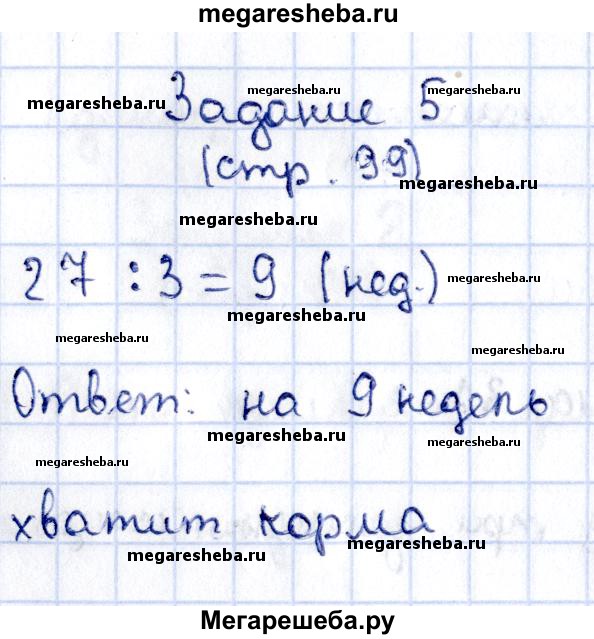 megaresheba.ru
megaresheba.ru
megaresheba.ru
Задание 5
(стр. 99)
megaresheba.ru
megaresheba.ru
27 : 3 = 9 (нед.)
megaresheba.ru
megaresheba.ru
megaresheba.ru
megaresheba.ru
Ответ: на 9 недель
megaresheba.ru
megaresheba.ru
megaresheba.ru
хватит корма
megaresheba.ru
megaresheba.ru
Мегарешеба.ру